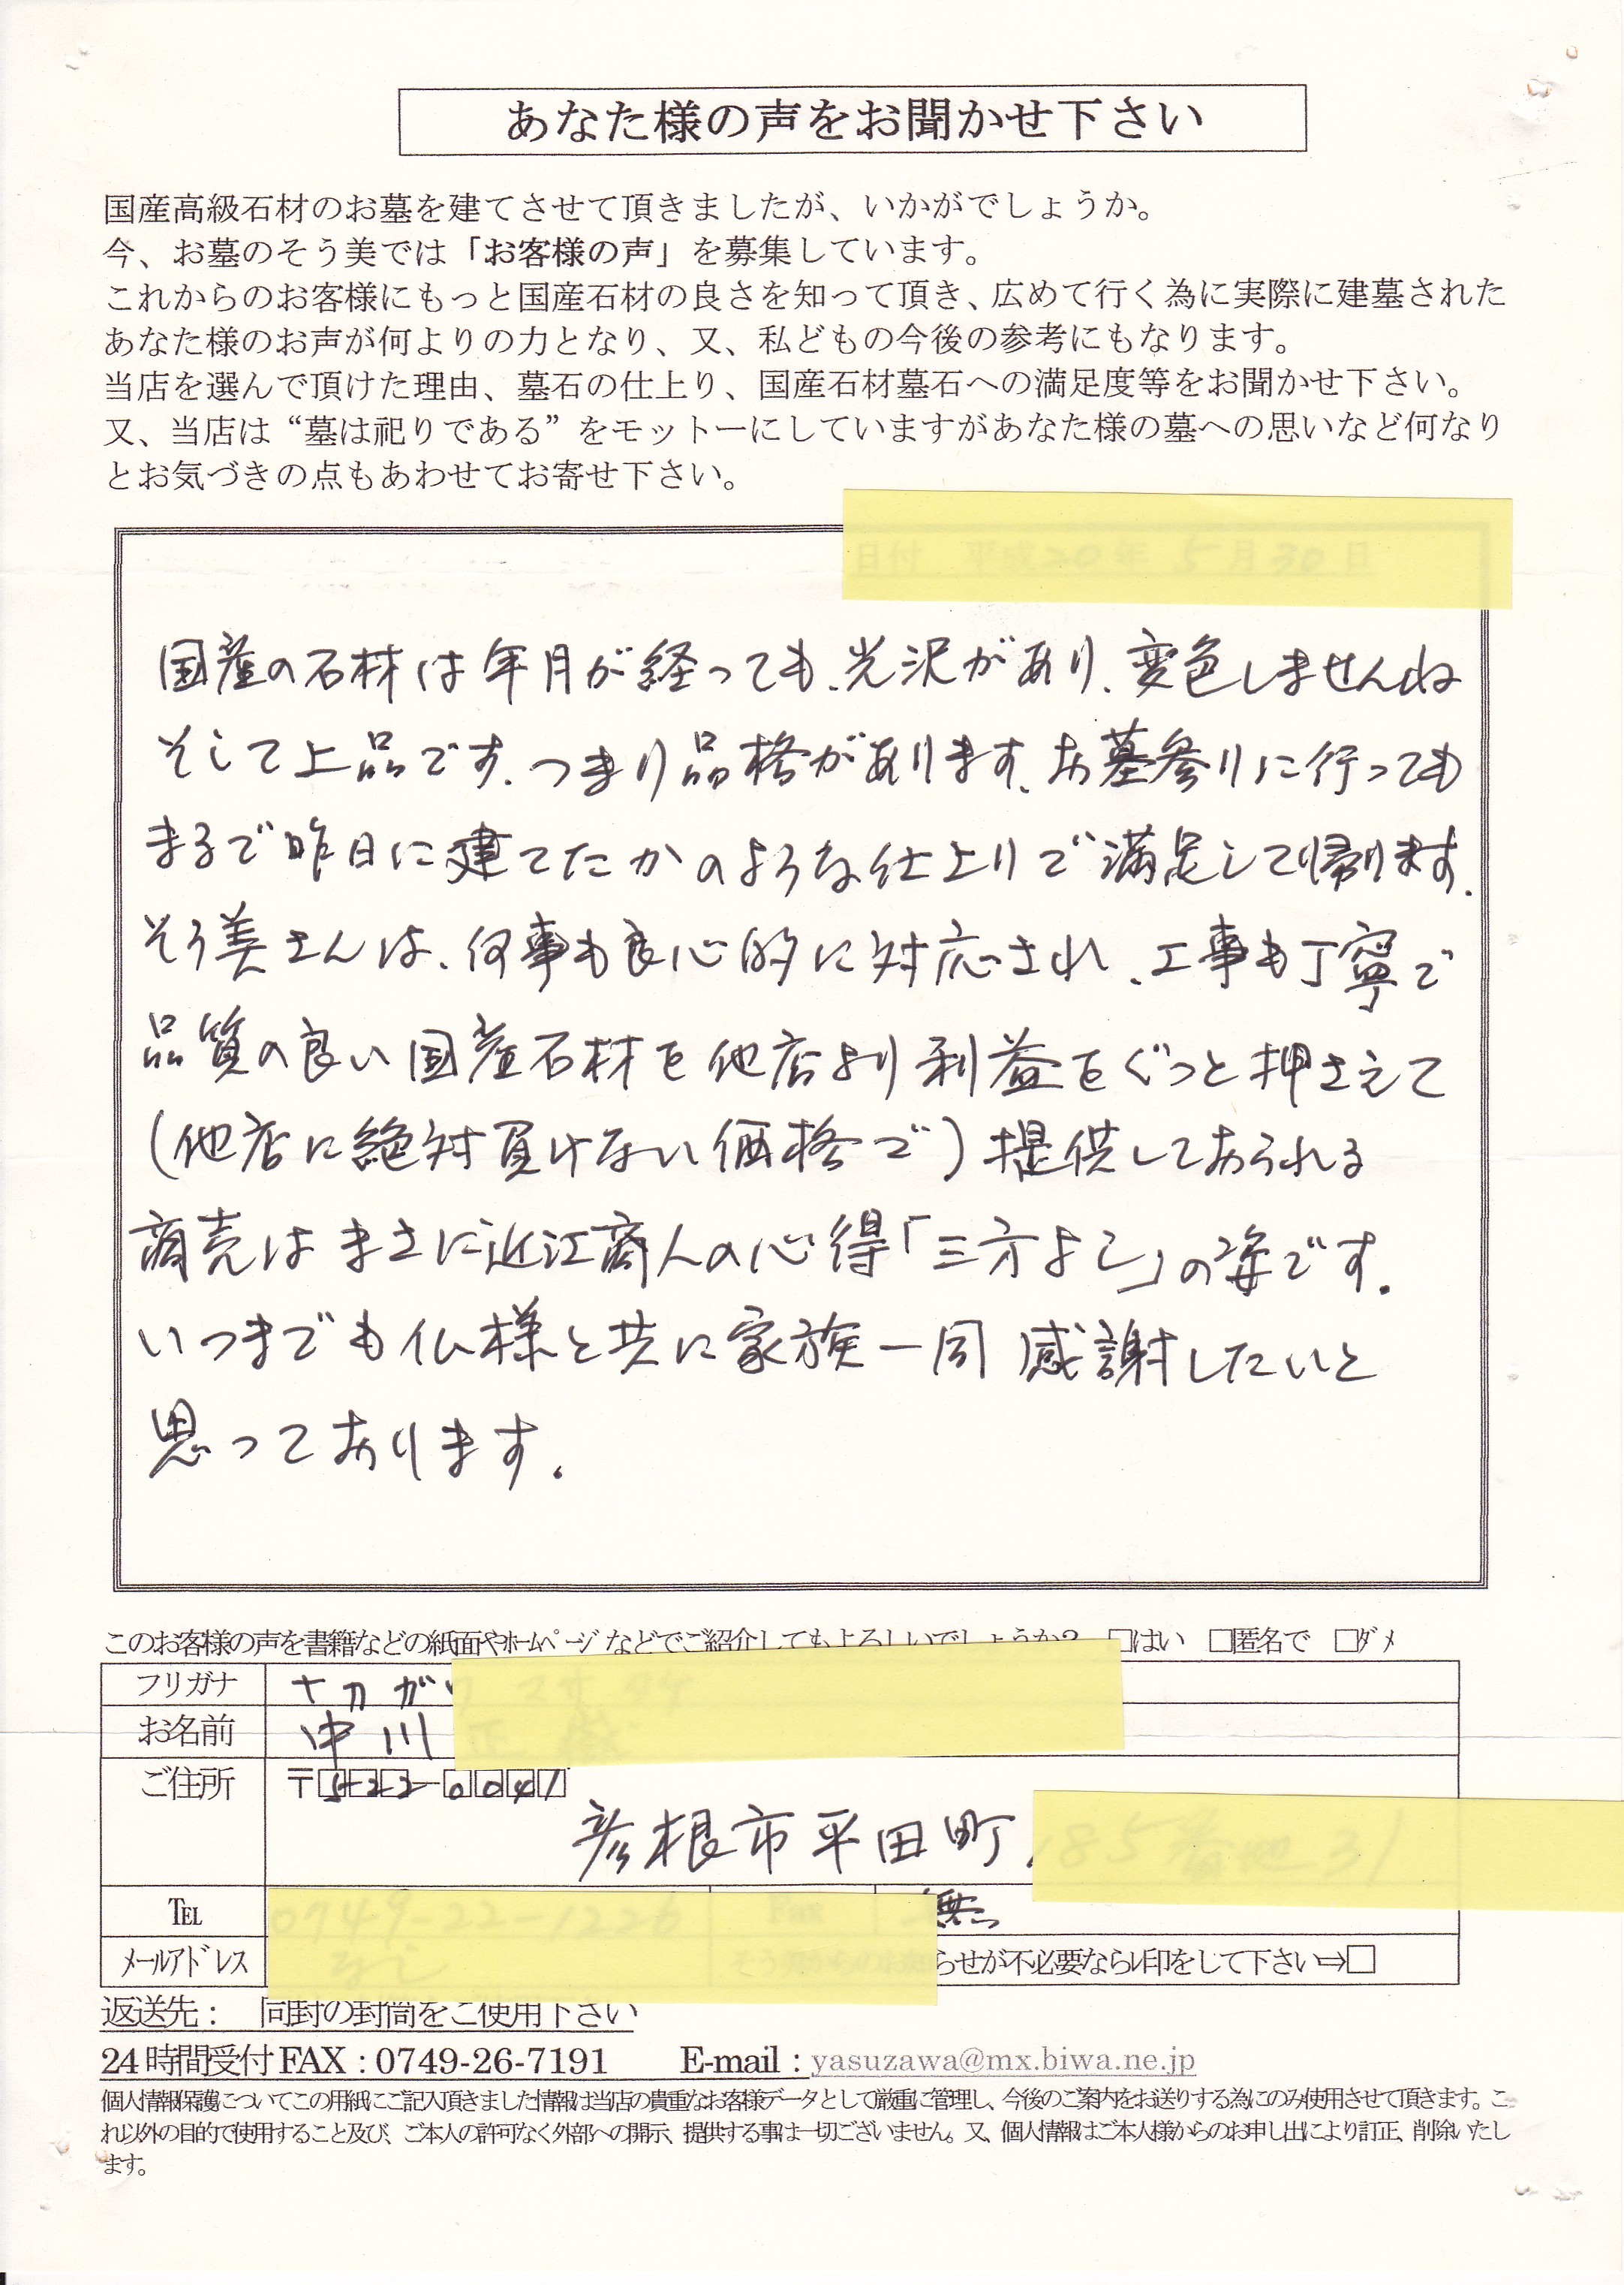 あなた様の声をお聞かせ下さい
国産高級石材のお墓を建てさせて頂きましたが、いかがでしょうか。
今、お墓のそう美では「お客様の声」を募集しています。
これからのお客様にもっと国産石材の良さを知って頂き、広めて行く為に実際に建墓された
あなた様のお声が何よりの力となり、又、私どもの今後の参考にもなります。
当店を選んで頂けた理由、墓石の仕上り、国産石材墓石への満足度等をお聞かせ下さい。
又、当店は“墓は祀りである”をモットーにしていますがあなた様の墓への思いなど何なり
とお気づきの点もあわせてお寄せ下さい。
国産の石材は年月が経っても、光沢があり、変色しませんね
そして上品です。つまり品格があります。お墓参りに行っても
まるで昨日に建てたかのような仕上りで満足して帰ります。
そう美さんは、何事も良心的に対応され、工事も丁寧で
品質の良い国産石材を他店より利益をぐっと押さえて
(他店に絶対負けない価格で)提供しておられる
商売はまさに近江商人の心得「三方よし」の姿です。
いつまでも仏様と共に家族一同感謝したいと
思っております。
このお客様の声を書籍などの紙面やホームページなどでご紹介してもよろしいでしょうか? □はい □匿名で □ダメ
フリガナ ナカガワ
お名前 中川
ご住所 〒522-0041
彦根市平田町
TEL 無
メールアドレス らせが不必要ならレ印をして下さい⇒□
返送先： 同封の封筒をご使用下さい
24時間受付FAX：0749-26-7191 E-mail：yasuzawa@mx.biwa.ne.jp
個人情報保護についてこの用紙にご記入頂きました情報は当店の貴重なお客様データとして厳重に管理し、今後のご案内をお送りする為にのみ使用させて頂きます。こ
れ以外の目的で使用すること及び、ご本人の許可なく外部への開示、提供する事は一切ございません。又、個人情報はご本人様からのお申し出により訂正、削除いたし
ます。